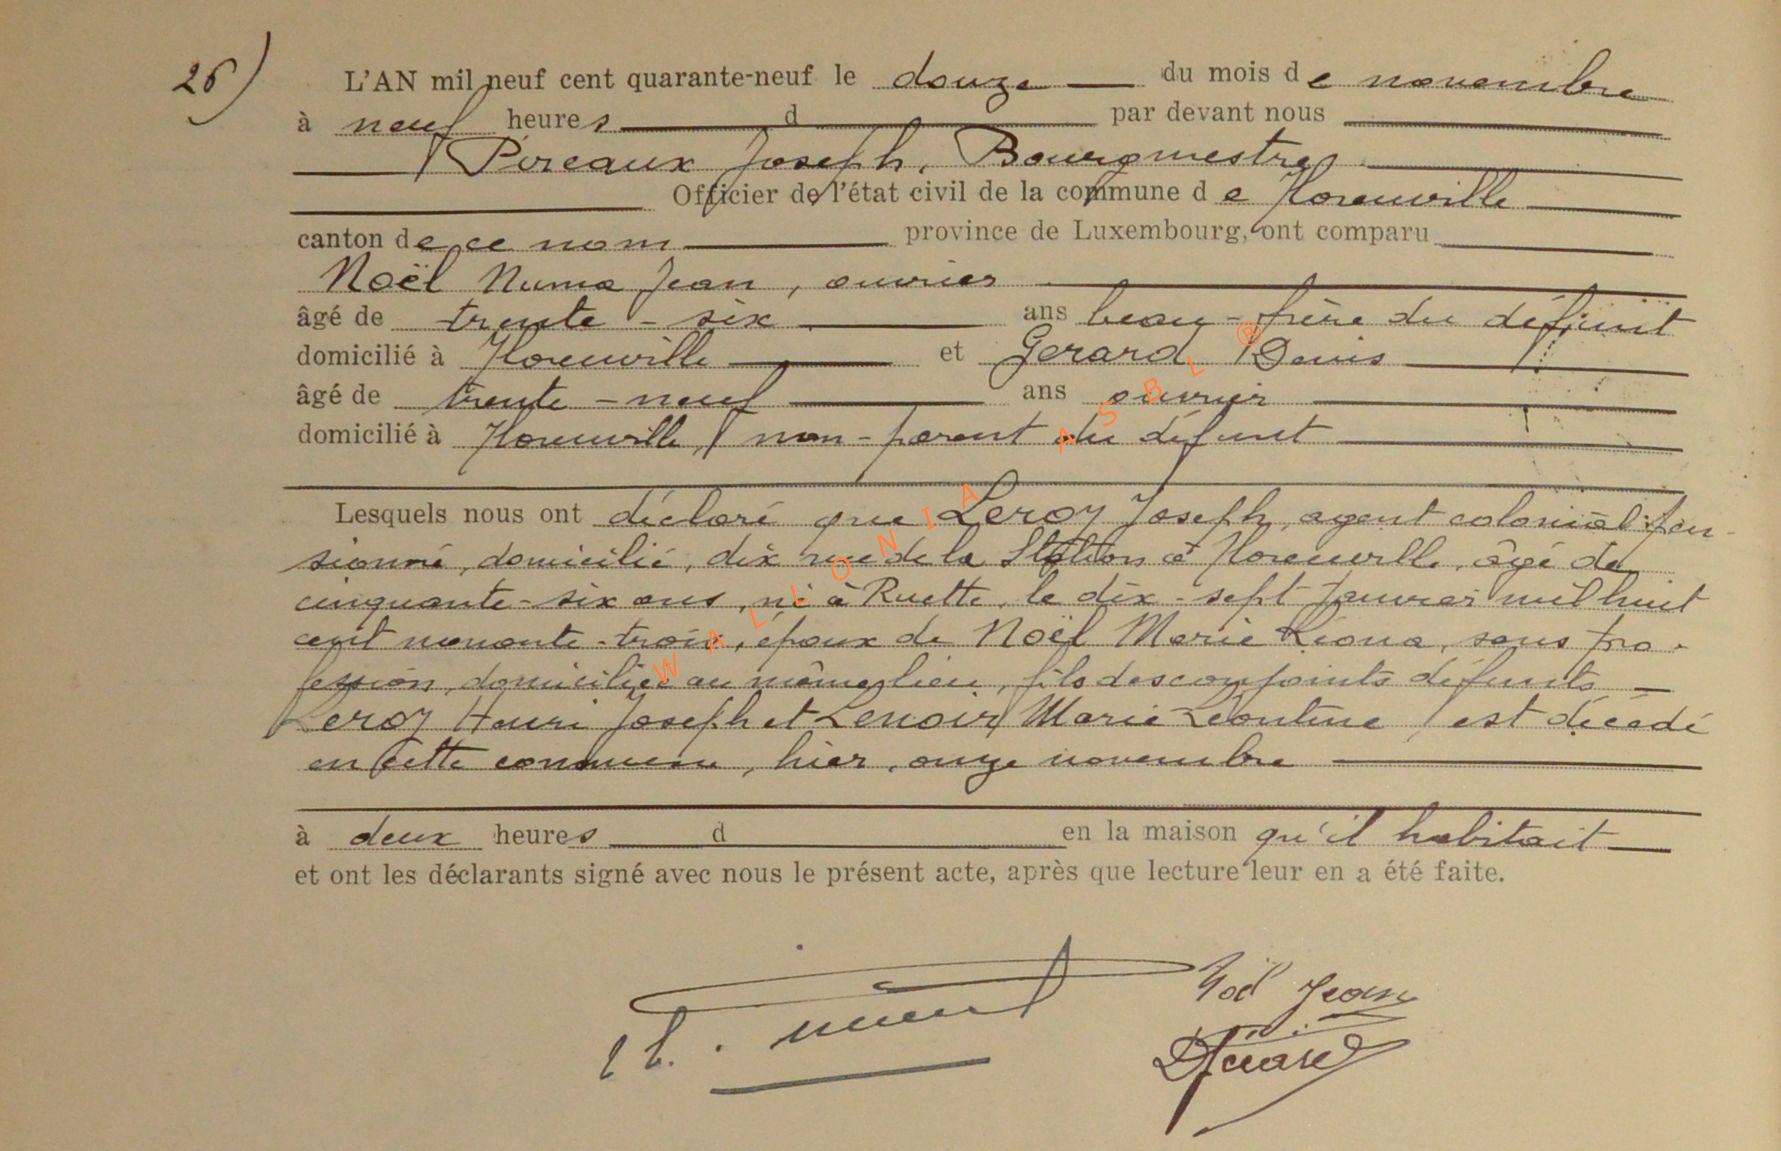 26)
L'AN mil neuf cent quarante-neuf le douze du mois de novembre
à neuf heures d par devant nous
Pireaux Joseph, Bourgmestre
Officier de l'état civil de la commune de Florenville
canton de ce nom province de Luxembourg, ont comparu
Noël Numa Jean, ouvrier
âgé de trente-six ans beau-frère du défunt
domicilié à Florenville et Gerard Denis
âgé de trente-neuf ans ouvrier
domicilié à Florenville, non-parent du défunt
Lesquels nous ont déclaré que Leroy Joseph, agent colonial pen-
sionné, domicilié, dix rue de la Station à Florenville, âgé de
cinquante-six ans, né à Ruette, le dix-sept janvier mil huit
cent nonante-trois, époux de Noël Marie Léona, sans pro-
fession, domiciliée au même lieu, fils des conjoints défunts
Leroy Henri Joseph et Lenoir Marie Léontine est décédé
en cette commune, hier, onze novembre
à deux heures d en la maison qu'il habitait
et ont les déclarants signé avec nous le présent acte, après que lecture leur en a été faite.
Noël Jean
DGérard
WALLONIA ASBL ®